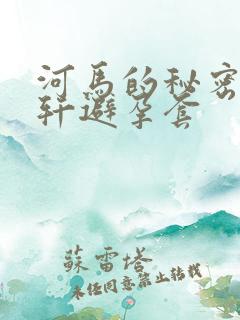 河馬的秘密
轩避孕套
蘇雷塔
未经同意禁止转载